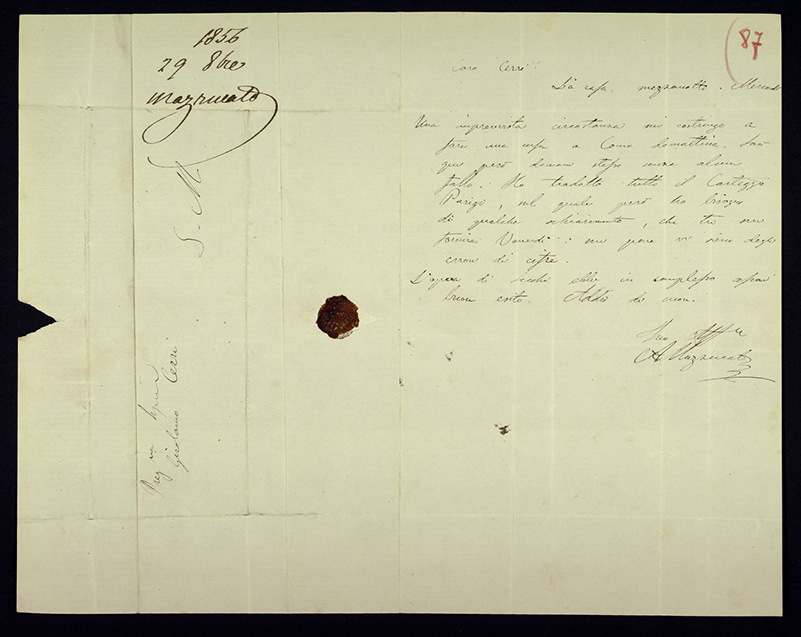 1856
29 8bre
Mazzucato
S. M.
Preg Signor
Girolamo Cerri
87
Caro Cerri
Di casa, mezzanotte. Merc
Una imprevista circostanza mi costringe a
fare una corsa a Como domattina.
però senza alcun
fallo. Ho tradotto tutto il Carteggio
Parigi, nel quale però ho bisogno
di qualche schiarimento, che tu me
fornirai Venerdì: me pare vi siano degli
errori di cifra.
L'opera di ebbe in complesso assai
buon esito. Addio di cuore.
Tuo Aff
AMazzucato